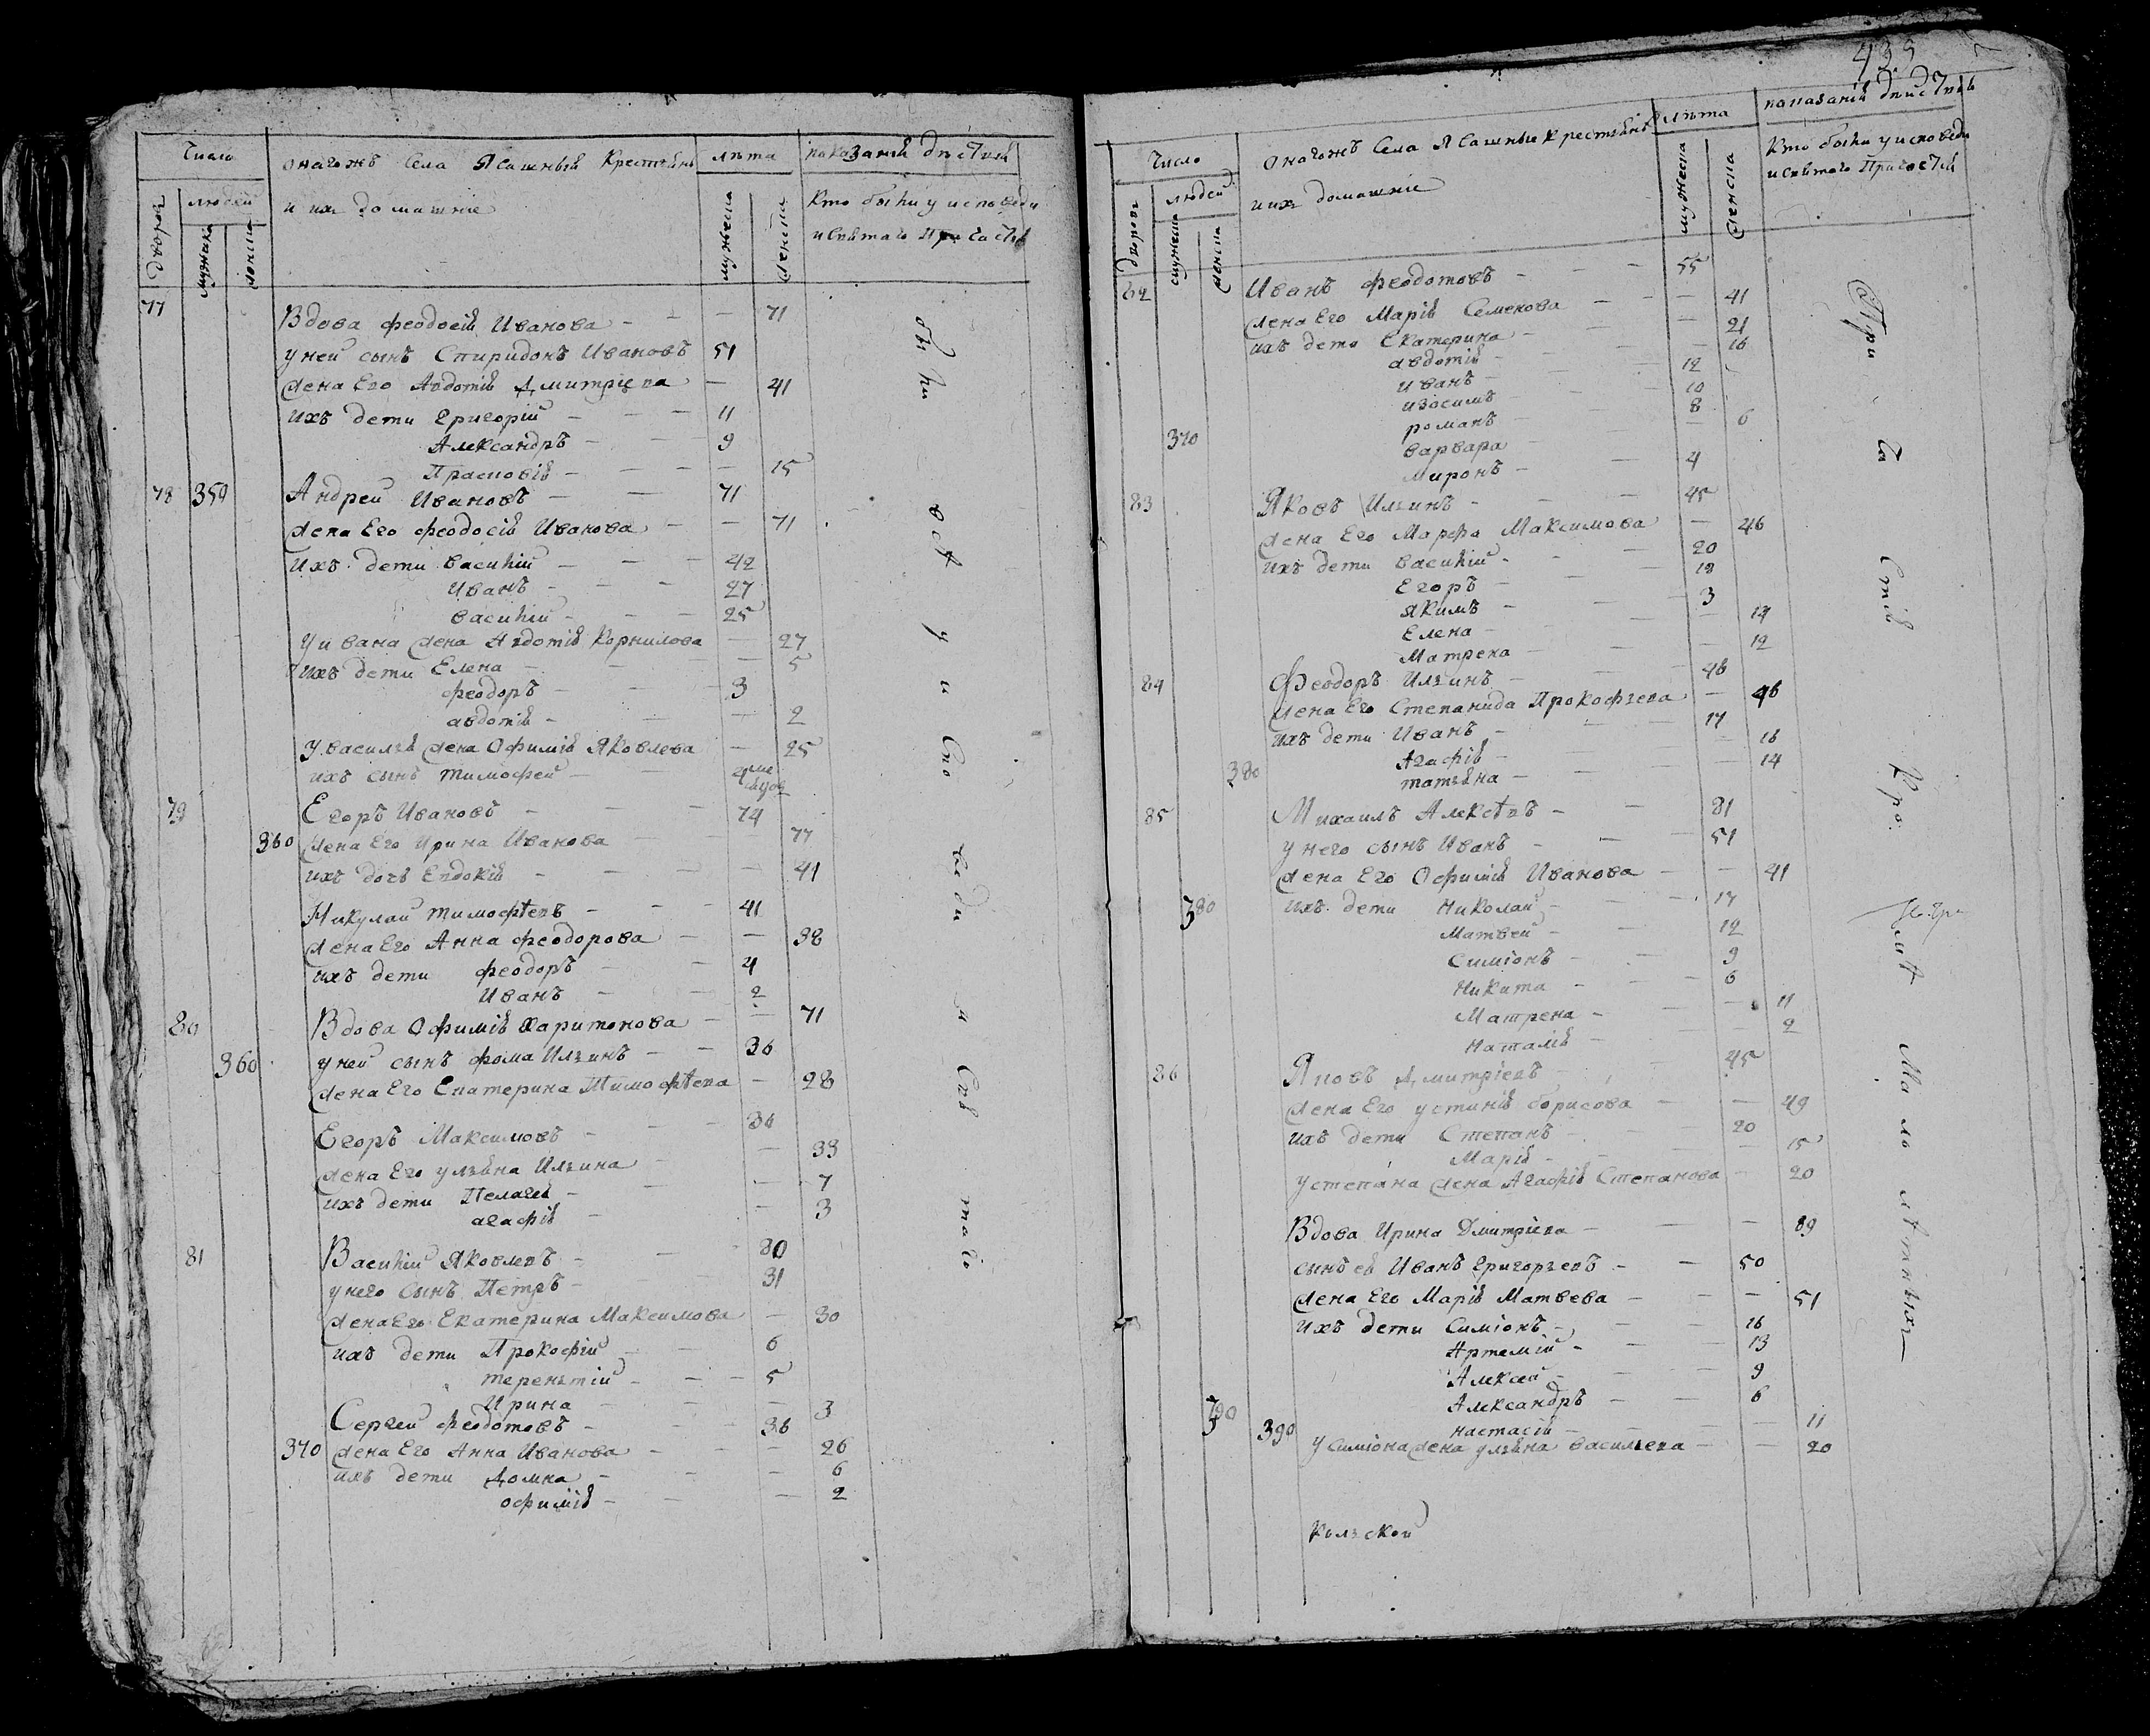 Число
дворовъ
людей
мужеска
женска
онагожъ Села Ясашныя крестьяня
и ихъ домашние
лѣта
мужеска
женска
показанія дѣйствій
Кто были у исповеди
и святаго Причастія
77 Вдова феодосія Иванова - - - 71
у ней сынъ Спиридонъ Ивановъ 51
жена Его Авдотія Дмитріева - 41
ихъ дети Григорій - - - 11
Александръ - - 9
Прасковія - - - - 15
78 359 Андрей Ивановъ - - 71
жена Его феодосія Иванова - - 71
ихъ дети василій - - - 42
иванъ - - - 27
василій - - - 25
у ивана жена Авдотія Корнилова - 27
ихъ дети Елена - - - 5
феодоръ - - - 3
авдотія - - - 2
у василья жена Офимія Яковлева - 25
ихъ сынъ тимофей - - 4
79 Егоръ Ивановъ - - - 74
360 жена Его Ирина Иванова - 77
ихъ дочь Евдокія - - - - 41
Никулай тимофѣевъ - - - 41
жена Его Анна феодорова - - 38
ихъ дети феодоръ - - 4
Иванъ - - 2
80 Вдова Офимія Харитонова - - 71
360 у ней сынъ фома Ильинъ - - 36
жена Его Екатерина Тимофѣева - 28
Егоръ Максимовъ - - - 36
жена Его ульяна Ильина - - 33
ихъ дети Пелагея - - - 7
агафія - - 3
81 Василій Яковлевъ - - 80
у него сынъ Петръ - 31
жена Его Екатерина Максимова - 30
ихъ дети Прокофій - - 6
терентій - - - 5
Ирина - - - 3
Сергей феодотовъ - - 36
370 жена Его Анна Иванова - - - 26
ихъ дети Домна - - 6
офимія - - - 2
были всѣ у исповеди и Свя таго
439
Число
дворовъ
людей
мужеска
женска
онагожъ Села Ясашные крестьяня
и ихъ домашніе
лѣта
мужеска
женска
показанія дѣйствія
Кто были у исповеди
и святаго Причастія
82 Иванъ феодотовъ - - - 55
жена Его Марія Семенова - - - 41
ихъ дети Екатерина - - 21
авдотія - - - 16
иванъ - - 12
изосимъ - - 10
романъ - - 8
370 варвара - - 6
миронъ - - 4
83 Яковъ Ильинъ - - - 45
жена Его Марфа Максимова - 46
ихъ дети василій - - - 20
Егоръ - - 18
якимъ - - - 3
Елена - - - 14
Матрена - - - 12
84 Феодоръ Ильинъ - - - 46
жена Его Степанида Прокофьева - 46
ихъ дети Иванъ - - - 17
Агафія - - - 16
380 татьяна - - - 14
85 Михаилъ Алексѣевъ - - 81
у него сынъ Иванъ - - 51
жена Его Офимія Иванова - - 41
380 ихъ дети Николай - - - 17
Матвей - - 12
Симіонъ - - 9
Никита - - - 6
Матрена - - - 11
Наталія - - - 2
86 Яковъ Дмитріевъ - - 45
жена Его устинія борисова - - 49
ихъ дети Степанъ - - - 20
Марія - - - 15
у степана жена Агафія Степанова - 20
Вдова Ирина Дмитріева - - - 89
сынъ ея Иванъ Григорьевъ - - 50
жена Его Марія Матвева - - - 51
ихъ дети Симіонъ - - - 16
Артемій - - 13
Алексей - - 9
790 Александръ - - 6
390 настасія - - - 11
у симіона жена ульяна васильева - - 20
Кольской
При ча стія кро мѣ Ма ло лѣтныхъ